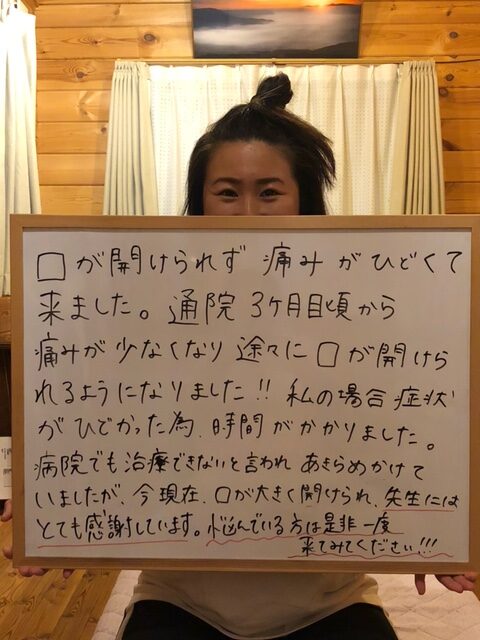 口が開けられず 痛みがひどくて
来ました。通院 3ケ月目頃から
痛みが少なくなり 途々に口が開けら
れるようになりました!! 私の場合 症状
がひどかった為、時間がかかりました。
病院でも治療できないと言われ あきらめかけて
いましたが、今現在、口が大きく開けられ、先生には
とても感謝しています。悩んでいる方は是非一度
来てみてください!!!